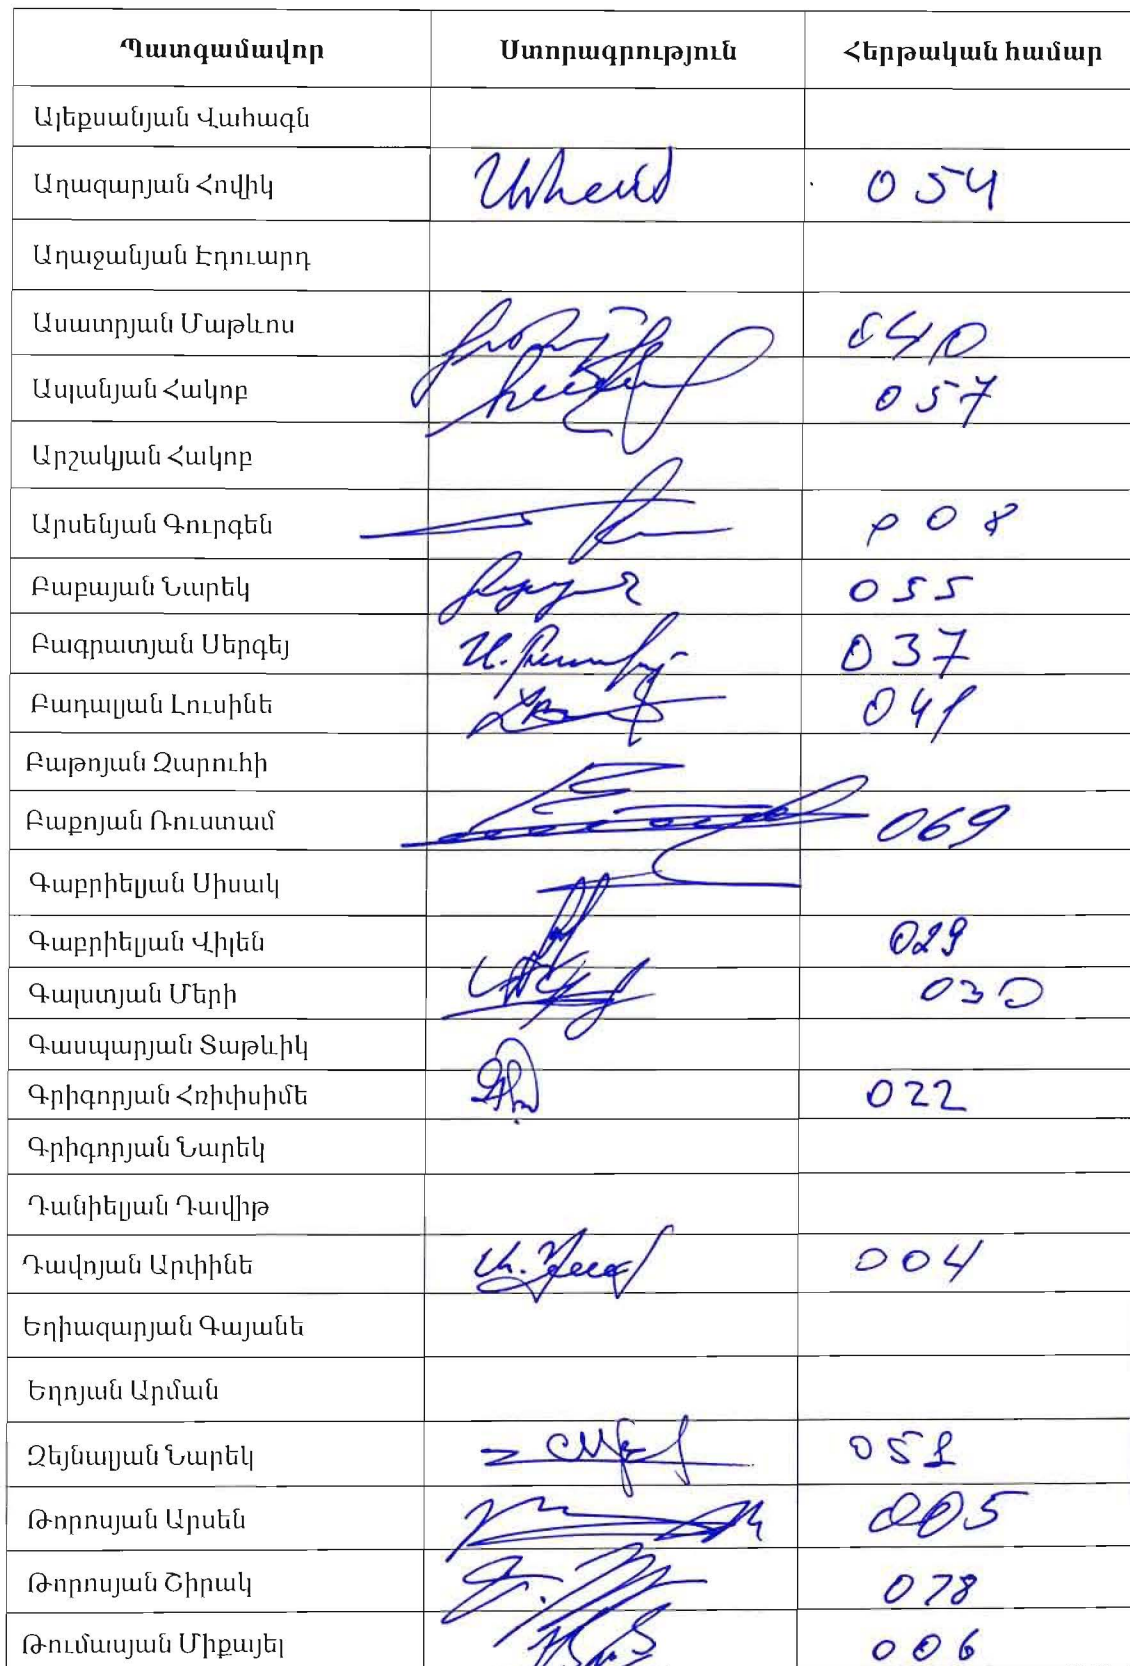 Պատգամավոր Ստորագրություն Հերթական համար
Ալեքսանյան Վահագն
Աղազարյան Հովիկ 054
Աղաջանյան Էդուարդ
Ասատրյան Մաթևոս 040
Ասլանյան Հակոբ 057
Արշակյան Հակոբ
Արսենյան Գուրգեն 008
Բաբայան Նարեկ 055
Բագրատյան Սերգեյ 037
Բադալյան Լուսինե 041
Բաթոյան Զարուհի
Բաքոյան Ռուստամ 069
Գաբրիելյան Սիսակ
Գաբրիելյան Վիլեն 029
Գալստյան Մերի 030
Գասպարյան Տաթևիկ
Գրիգորյան Հռիփսիմե 022
Գրիգորյան Նարեկ
Դանիելյան Դավիթ
Դավոյան Արփինե 004
Եղիազարյան Գայանե
Եղոյան Արման
Զեյնալյան Նարեկ 051
Թորոսյան Արսեն 005
Թորոսյան Շիրակ 078
Թումասյան Միքայել 006